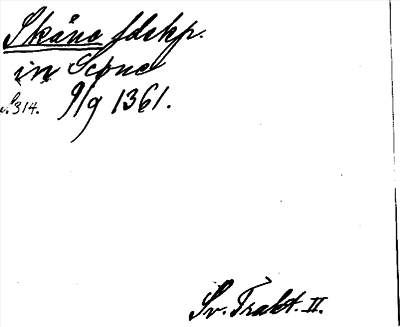 Skåne ldskp.
in Scone
S.314. 9/9 1361.
Sv. Trakt. II.